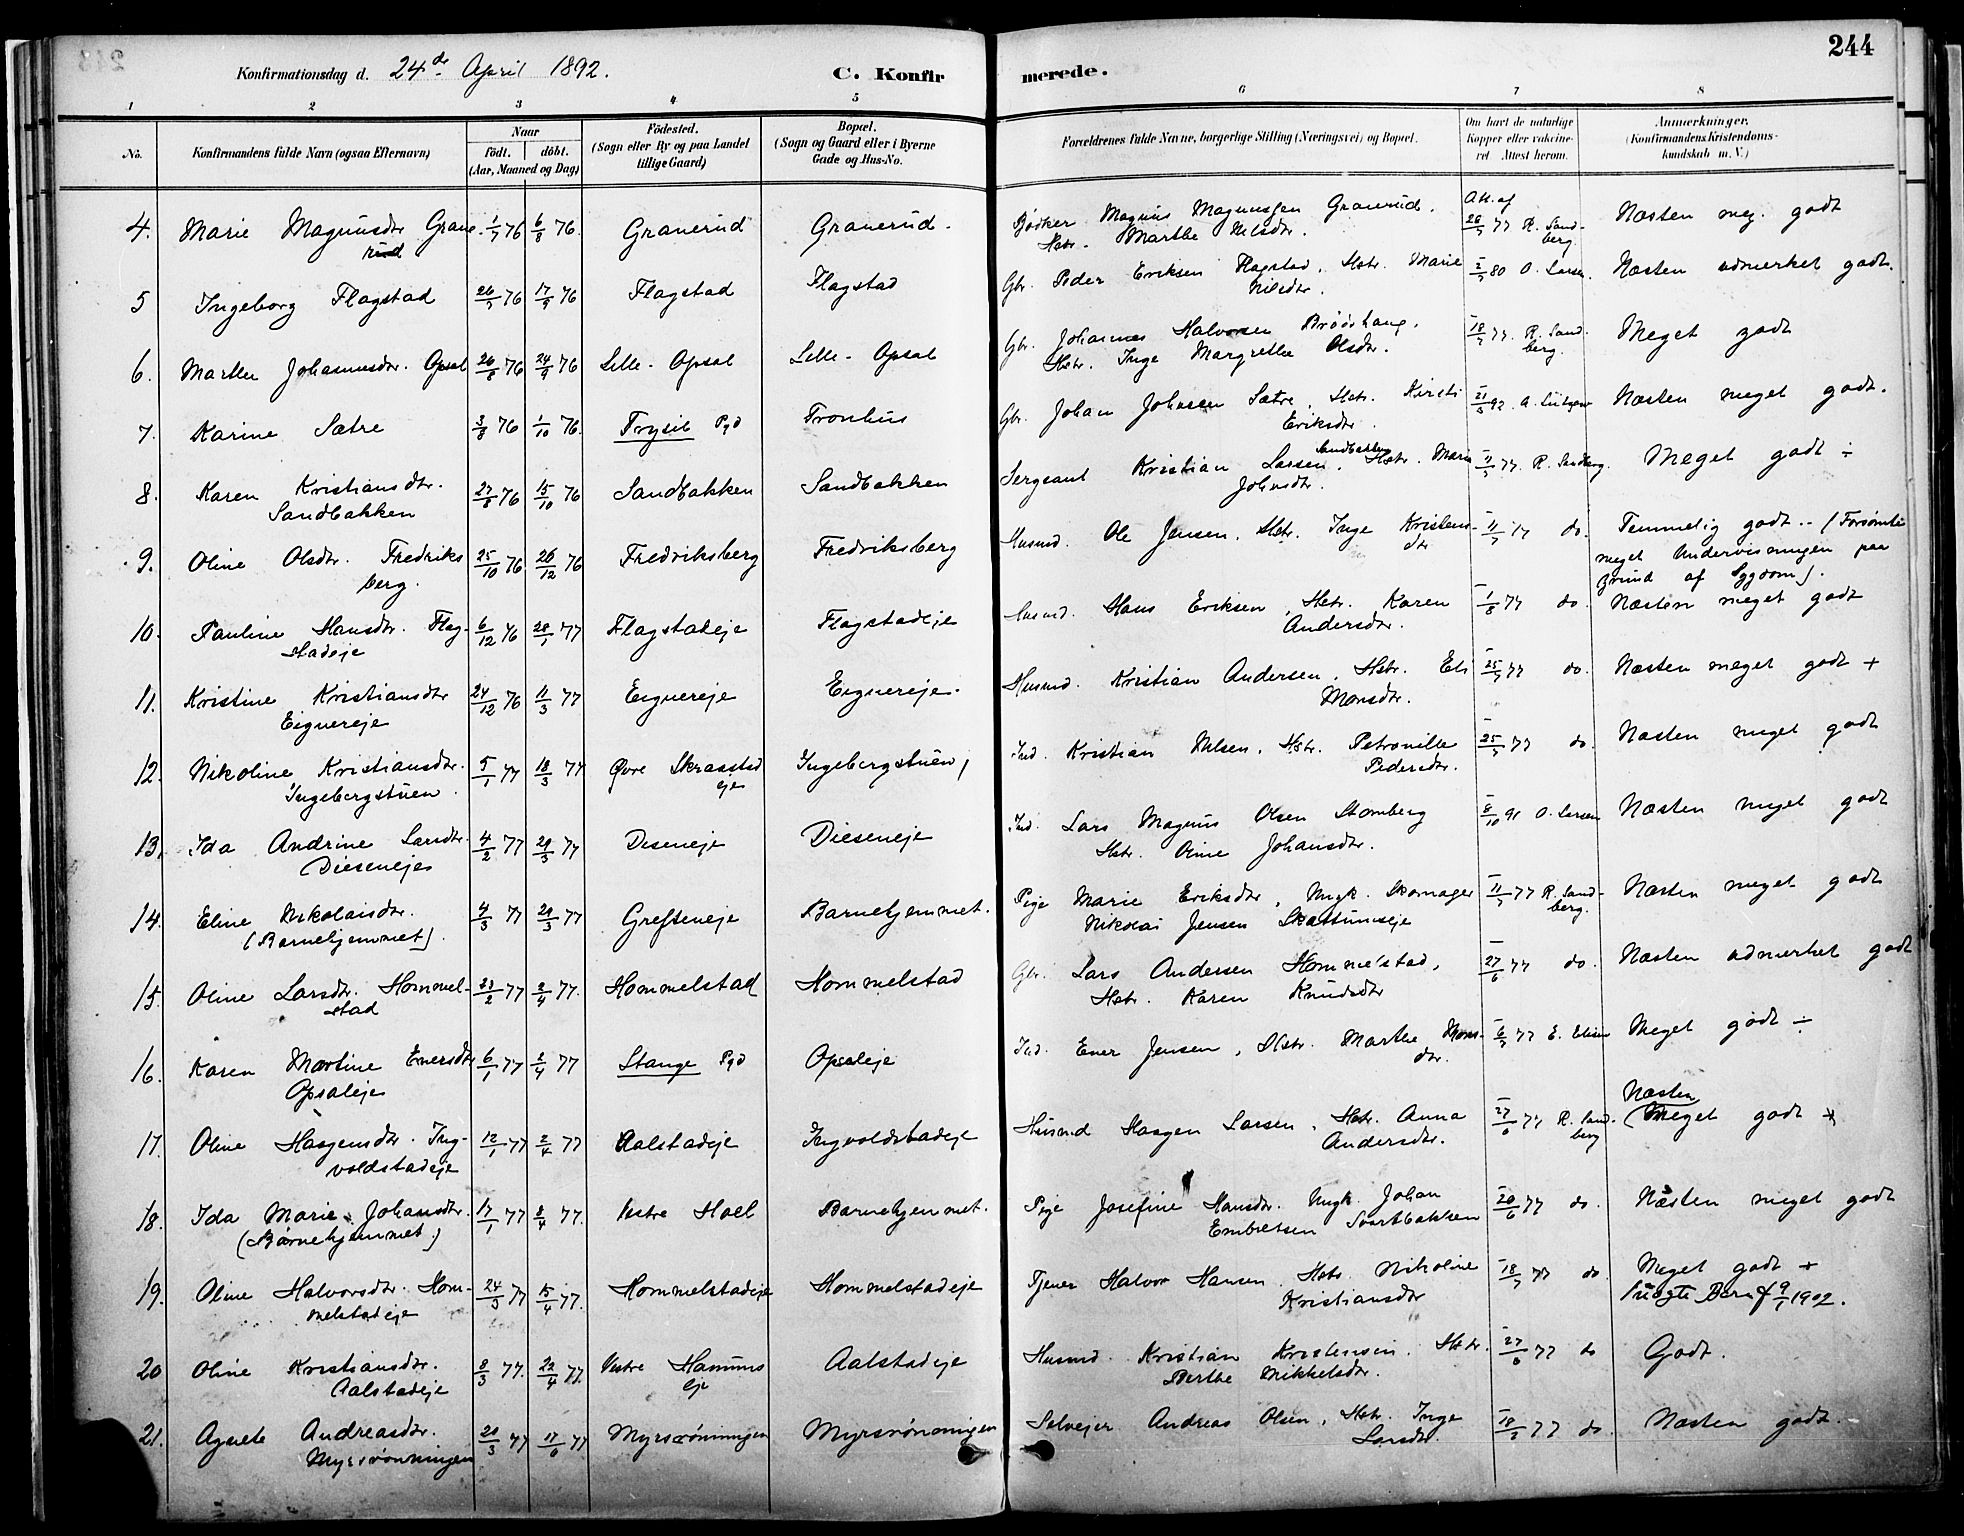 244
Konfirmationsdag d. 24de April 1892. C. Konfirmerede.
1 2 3 4 5 6 7 8
No. Konfirmandens fulde Navn (ogsaa Efternavn) Naar födt. döbt. (Aar, Maaned og Dag) Födested. (Sogn eller By og paa Landet tillige Gaard) Bopæl. (Sogn og Gaard eller i Byerne Gade og Hus-No. Forældrenes fulde Navne, borgerlige Stilling (Næringsvei) og Bopæl. Om havt de naturlige Kopper eller vaksineret Attest herom. Anmerkninger. (Konfirmandens Kristendomskundskab m. V.)
4. Marie Magnusdtr Granerud 1/7 76 6/8 76. Granerud Granerud. Bødker Magnus Magnussen Granerud. Hstr. Marthe Nilsdtr. Att. af 26/7 77 R. Sandberg Næsten meg. godt
5 Ingeborg Flagstad 26/7 76 17/9 76 Flagstad Flagstad Gbr. Peder Eriksen Flagstad, Hstr. Marie Nilsdtr. 2/7 80 O. Larsen. Næsten udmerket godt.
6. Marthe Johannesdtr. Opsal 26/8 76 24/9 76 Lille-Opsal Lille-Opsal Gbr. Johannes Halvorsen. Hstr. Inge Margrethe Olsdtr. 18/7 77. R. Sandberg. Meget godt
7. Karine Sætre 3/8 76 1/10 76. Trysil Pgd Tronhus Gbr. Johan Johnsen Sætre, Hstr. Kirsti Eriksdtr. 21/3 92. A. Næsten meget godt.
8. Karen Kristiansdtr. Sandbakken 27/8 76 15/10 76 Sandbakken Sandbakken Sergeant Kristian Larsen Sandbakken, Hstr. Marie Johnsdtr. 11/7 77. R. Sandberg. Meget godt ÷
9. Oline Olsdtr. Fredriksberg. 25/10 76 26/12 76 Fredriksberg Fredriksberg Husmd. Ole Jensen, Hstr. Inge Kristensdtr 11/7 77 do. Temmelig godt.- (Forsømte meget Undervisningen paa grund af Sygdom).
10. Pauline Hansdtr. Flagstadeje 6/12 76 28/1 77 Flagstadeje Flagstadeje Husmd. Hans Eriksen, Hstr. Karen Andersdtr. 1/8 77 do. Næsten meget godt
11. Kristine Kristiansdtr Eignereje 24/12 76 11/3 77 Eignereje Eignereje. Husmd. Kristian Andersen, Hstr. Eli Monsdtr. 25/7 77 do. Næsten meget godt +
12. Nikoline Kristiansdtr. Ingebergstuen. 5/1 77 18/3 77 Øvre Skrasstad eje Ingebergstuen, Ind. Kristian Nilsen, Hstr. Petronille Pedersdtr. 25/7 77 do. Næsten meget godt
13. Ida Andrine Larsdtr. Dieseneje 4/2 77 29/3 77 Deseneje Dieseneje Ind. Lars Magnus Olsen Stomberg Hstr. Oline Johansdtr. 8/10 91 O. Larsen Næsten meget godt
14. Eline Nikolaisdtr. (Barnehjemmet). 4/3 77 29/3 77 Grefseneje Barnehjemmet. Pige Marie Eriksdtr, Ungk. Skomager Nikolai Jensen Skattumseje 11/7 77 R. Sandberg. Næsten meget godt
15. Oline Larsdtr. Hommelstad 23/2 77 2/4 77. Hommelstad Hommelstad Gbr. Lars Andersen Hommelstad, Hstr. Karen Knudsdtr 27/6 77 do. Næsten udmerket godt
16. Karen Martine Enersdtr Opsaleje 6/1 77 2/4 77 Stange Pgd Opsaleje Ind. Ener Jensen, Hstr. Marthe Hansdtr. 6/7 77 E. Meget godt ÷
17. Oline Haagensdtr. Ingvoldstadeje 12/1 77 2/4 77 Aalstadeje Ingvoldstadeje Husmd Haagen Larsen, Hstr. Anna Andersdtr. 27/6 77 R. Sandberg Næsten (Meget godt +
18. Ida Marie Johansdtr. (Barnehjemmet.) 17/1 77 8/4 77. Vestre Hoel Barnehjemmet. Pige Josefine Hansdtr. Ungk. Johan Embretsen Svartbakken 20/6 77 do. Næsten meget godt
19. Oline Halvorsdtr. Hommelstadeje 24/3 77 15/4 77. Hommelstadeje Hommelstadeje Tjener Halvor Hansen, Hstr. Nikoline Kristiansdtr 18/7 77 do. Meget godt + 9/1 1902.
20 Oline Kristiansdtr. Aalstadeje 8/3 77. 22/4 77. Vestre Hammers eje Aalstadeje Husmd. Kristian Kristensen. Hstr. Berthe Mikkelsdtr. 27/6 77 do Godt.
21. Agnete Andreasdtr. Myrsrönningen 20/3 77 17/6 77 Myrsrönningen Myrsrönningen Selvejer Andreas Olsen, Hstr. Inge Larsdtr. 18/7 77 do. Næsten godt.